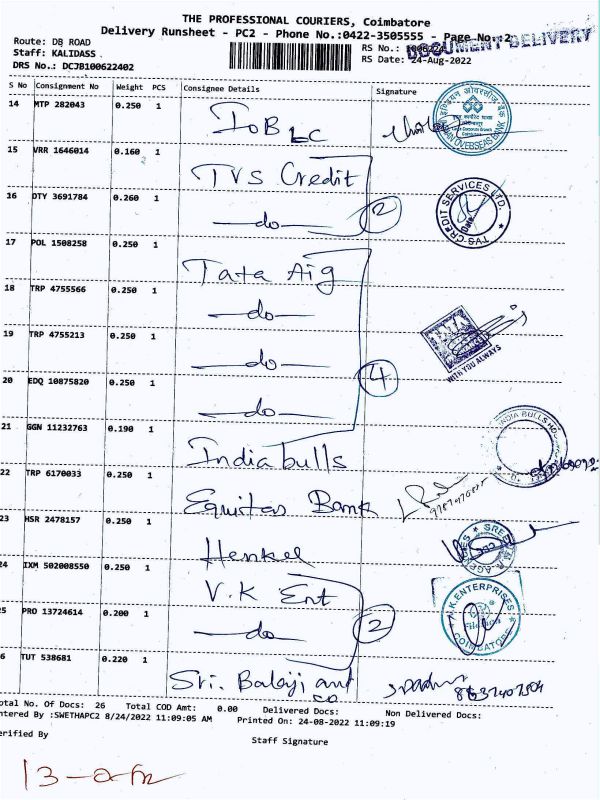 THE PROFESSIONAL COURIERS, Coimbatore
Delivery Runsheet - PC2 - Phone No.:0422-3505555 - Page No:2
DOCUMENT DELIVERY
Route: DB ROAD
Staff: KALIDASS
DRS No.: DCJB100622402
RS No.:
RS Date: 24-Aug-2022
S No Consignment No Weight PCS Consignee Details Signature
14 MTP 282043 0.250 1 IOB LC
15 VRR 1646014 0.160 1 TVS Credit
2
16 DTY 3691784 0.260 1 —do— 2
TVS CREDIT SERVICES LTD.
17 POL 1508258 0.250 1 Tata Aig
18 TRP 4755566 0.250 1 —do—
19 TRP 4755213 0.250 1 —do—
WITH YOU ALWAYS
20 EDQ 10875820 0.250 1 —do— 4
21 GGN 11232763 0.190 1 India bulls
INDIA BULLS
22 TRP 6170033 0.250 1 Equitas Bank
23 HSR 2478157 0.250 1 Henkel
24 IXM 502008550 0.250 1 V.K Ent
V.K.ENTERPRISES
COIMBATORE
25 PRO 13724614 0.200 1 —do— 2
26 TUT 538681 0.220 1 Sri. Balaji and co
Total No. Of Docs: 26 Total COD Amt: 0.00 Delivered Docs: Non Delivered Docs:
Entered By :SWETHAPC2 8/24/2022 11:09:05 AM Printed On: 24-08-2022 11:09:19
Verified By
Staff Signature